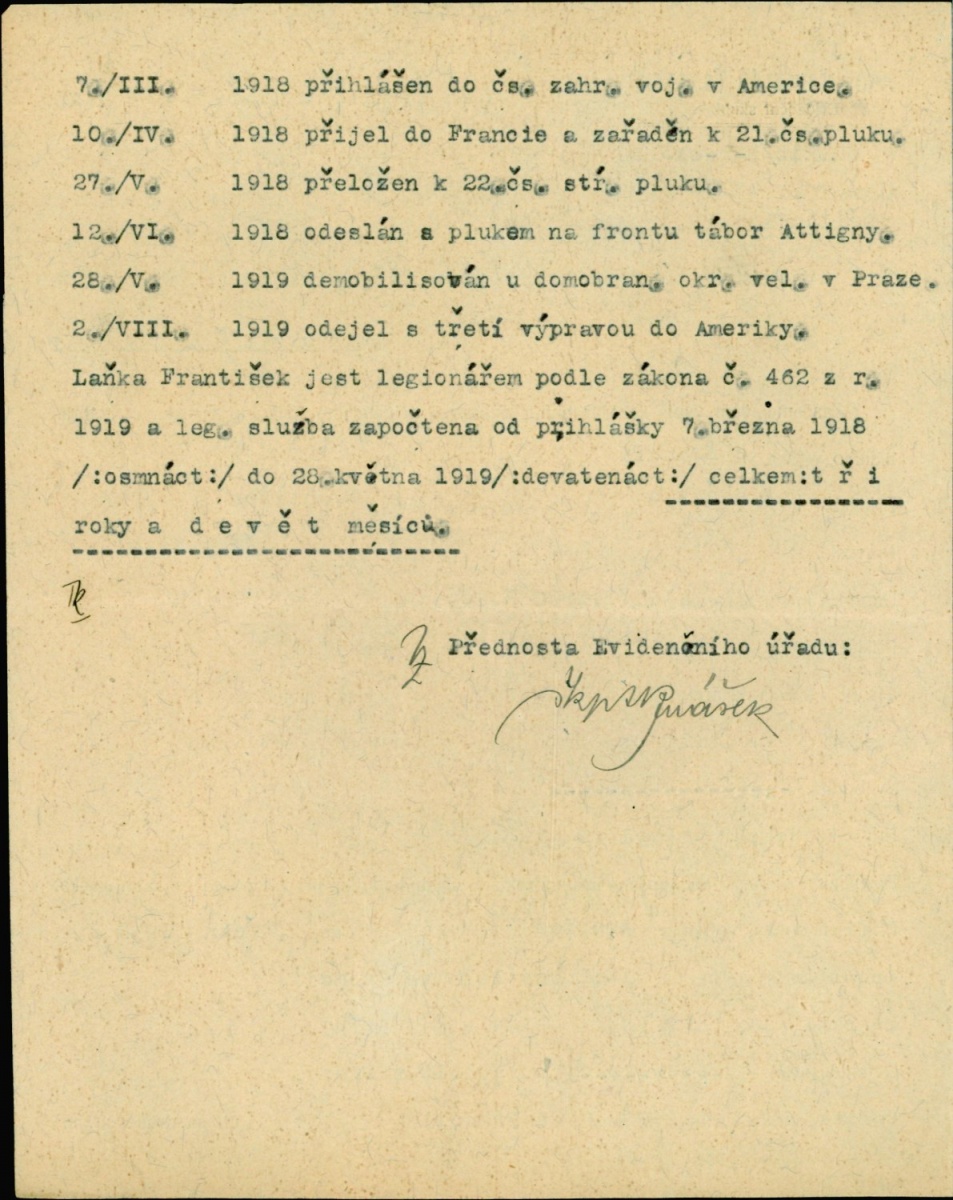 7./III. 1918 přihlášen do čs. zahr. voj. v Americe.
10./IV. 1918 přijel do Francie a zařaděn k 21.čs.pluku.
27./V. 1918 přeložen k 22.čs. stř. pluku.
12./VI. 1918 odeslán s plukem na frontu tábor Attigny.
28./V. 1919 demobilisován u domobran. okr. vel. v Praze.
2./VIII. 1919 odejel s třetí výpravou do Ameriky.
Laňka František jest legionářem podle zákona č. 462 z r.
1919 a leg. služba započtena od přihlášky 7.března 1918
/:osmnáct:/ do 28.května 1919/:devatenáct:/ celkem:t ř i
roky a d e v ě t měsíců.
Přednosta Evidenčního úřadu: